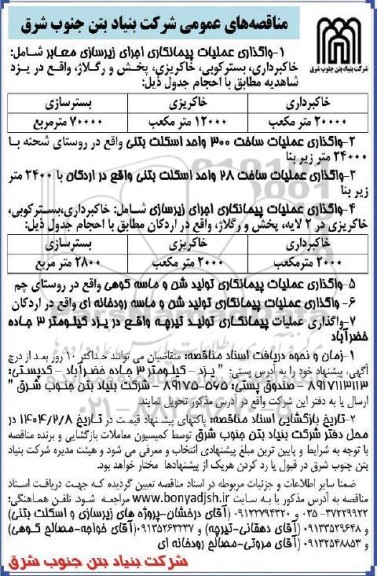 مناقصه‌های عمومی شرکت بنیاد بتن جنوب شرق
شرکت بنیاد بتن جنوب شرق
۱-واگذاری عملیات پیمانکاری اجرای زیرسازی معابر شامل:
خاکبرداری، بسترکوبی، خاکریزی، پخش و رگلاژ، واقع در یزد
شاهدیه مطابق با احجام جدول ذیل:
خاکبرداری خاکریزی بسترسازی
۲۰۰۰۰ متر مکعب ۱۲۰۰۰ متر مکعب ۷۰۰۰۰ مترمربع
۲-واگذاری عملیات ساخت ۳۰۰ واحد اسکلت بتنی واقع در روستای شحنه با
۲۴۰۰۰ متر زیر بنا
۳-واگذاری عملیات ساخت ۲۸ واحد اسکلت بتنی واقع در اردکان با ۲۴۰۰ متر
زیر بنا
۴-واگذاری عملیات پیمانکاری اجرای زیرسازی شامل: خاکبرداری،بسترکوبی،
خاکریزی در ۲ لایه، پخش و رگلاژ، واقع در اردکان مطابق با احجام جدول ذیل:
خاکبرداری خاکریزی بسترسازی
۲۰۰۰ متر مکعب ۲۰۰۰ متر مکعب ۲۸۰۰ متر مربع
۵-واگذاری عملیات پیمانکاری تولید شن و ماسه کوهی واقع در روستای جم
۶-واگذاری عملیات پیمانکاری تولید شن و ماسه رودخانه ای واقع در اردکان
۷-واگذاری عملیات پیمانکاری تولید تیرچه واقع در یزد کیلومتر ۳ جاده
خضرآباد
۱-زمان و نحوه دریافت اسناد مناقصه: متقاضیان می توانند حداکثر ۱۰ روز بعد از درج
آگهی، پیشنهاد خود را به آدرس پستی: " یزد - کیلومتر ۳ جاده خضرآباد - کدپستی:
۸۹۱۷۱۱۳۱۱۳ - صندوق پستی: ۵۶۵-۸۹۱۷۵ - شرکت بنیاد بتن جنوب شرق "
ارسال یا به دفتر این شرکت واقع در آدرس مذکور تحویل نمایند.
۲-تاریخ بازگشایی اسناد مناقصه: پاکتهای پیشنهاد قیمت در تاریخ ۱۴۰۴/۲/۸ در
محل دفتر شرکت بنیاد بتن جنوب شرق توسط کمیسیون معاملات بازگشایی و برنده مناقصه
با توجه به شرایط و پایین ترین مبلغ پیشنهادی انتخاب و معرفی می شود و هیئت مدیره شرکت بنیاد
بتن جنوب شرق در قبول یا رد کردن هریک از پیشنهادها مختار خواهد بود.
ضمنا سایر اطلاعات و جزئیات مربوطه در اسناد مناقصه تعیین گردیده که جهت دریافت اسناد
مناقصه به آدرس مذکور یا به سایت www.bonyadjsh.ir مراجعه شود. تلفن هماهنگی:
۳۷۲۲۹۹۲۲-۰۳۵ و ۰۹۱۳۳۷۹۴۳۲۰ (آقای درخشان-پروژه های زیرسازی و اسکلت بتنی)
۰۹۱۳۳۵۲۹۶۴۸ (آقای دهقانی-تیرچه) و ۰۹۱۳۵۲۶۳۲۳۷ (آقای خواجه-مصالح کوهی)
و ۰۹۱۳۲۵۴۸۸۵۳ (آقای مروتی-مصالح رودخانه ای
شرکت بنیاد بتن جنوب شرق